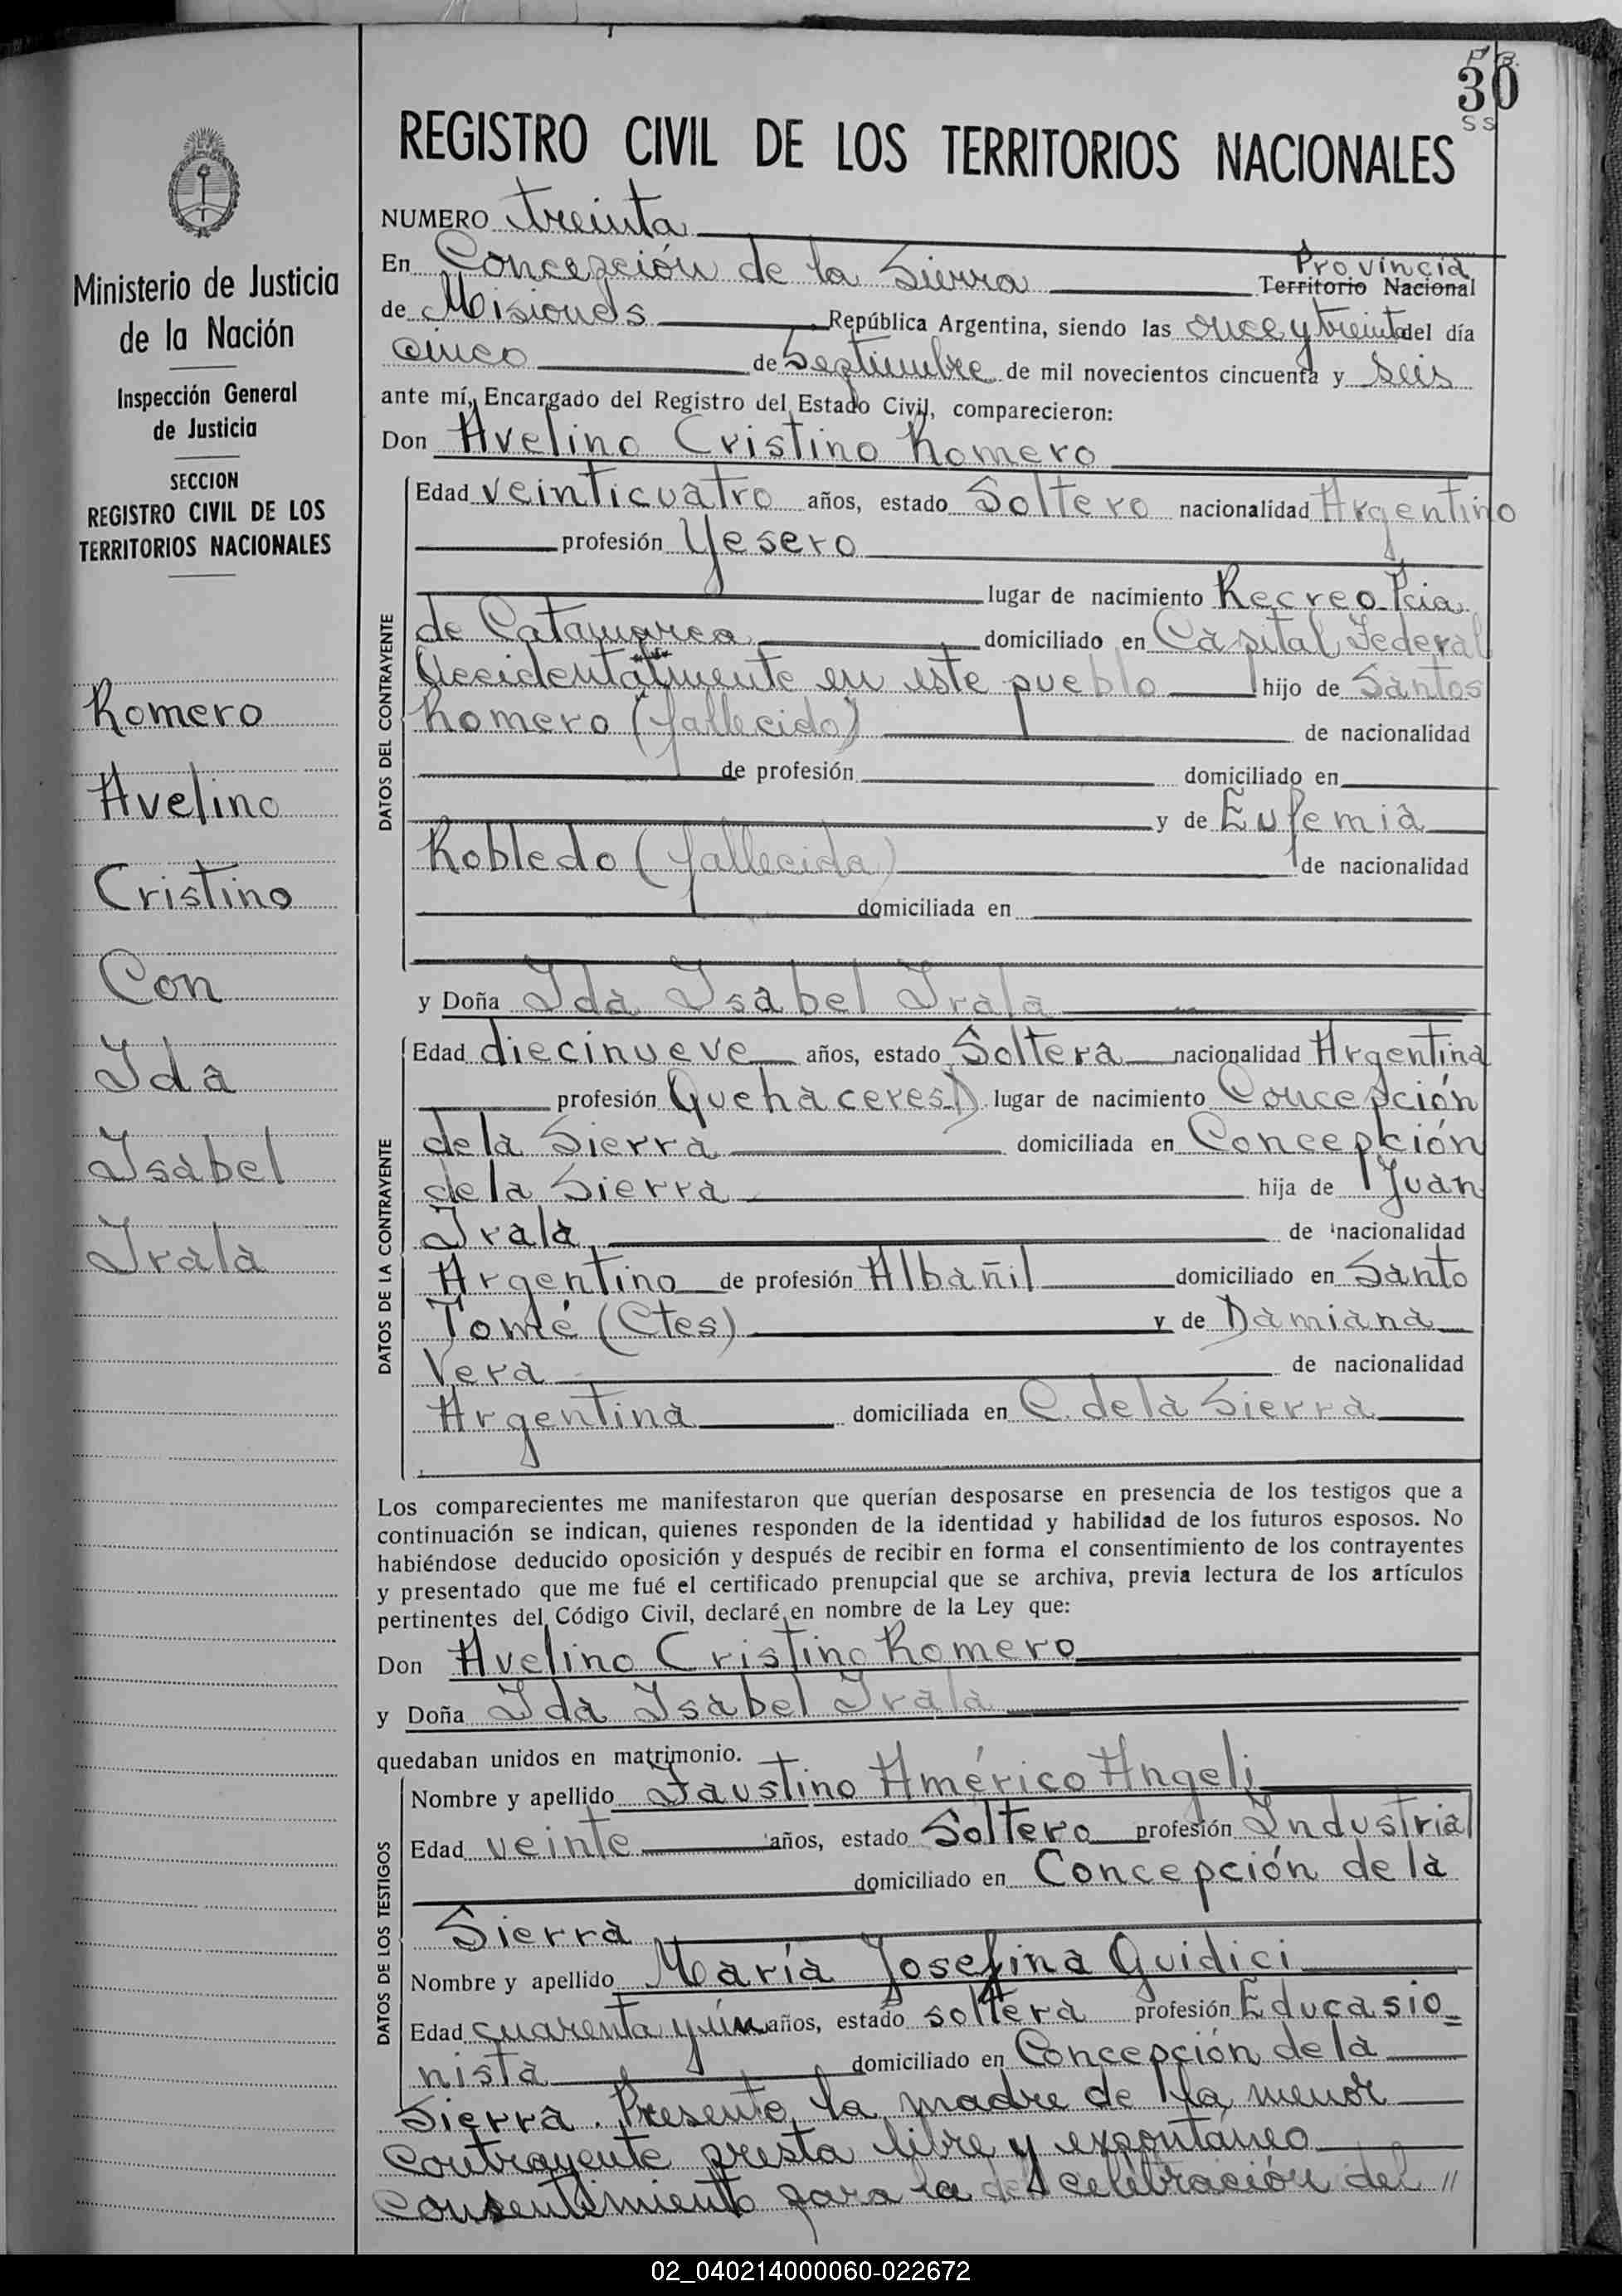 30
SS
REGISTRO CIVIL DE LOS TERRITORIOS NACIONALES
Ministerio de Justicia
de la Nación
Inspección General
de Justicia
SECCION
REGISTRO CIVIL DE LOS
TERRITORIOS NACIONALES
Romero
Avelino
Cristino
Con
Ida
Isabel
Irala
NUMERO treinta
Provincia
En Concepción de la Sierra Territorio Nacional
de Misiones República Argentina, siendo las once y treinta del día
cinco de Septiembre de mil novecientos cincuenta y seis
ante mí, Encargado del Registro del Estado Civil, comparecieron:
Don Avelino Cristino Romero
DATOS DEL CONTRAYENTE
Edad veinticuatro años, estado Soltero nacionalidad Argentino
profesión Yesero
lugar de nacimiento Recreo Pcia
de Catamarca domiciliado en Capital Federal
Accidentalmente en este pueblo hijo de Santos
Romero (fallecido) de nacionalidad
de profesión domiciliado en
y de Eufemia
Robledo (fallecida) de nacionalidad
domiciliada en
y Doña Ida Isabel Irala
DATOS DE LA CONTRAYENTE
Edad diecinueve años, estado Soltera nacionalidad Argentina
profesión Quehaceres D lugar de nacimiento Concepción
de la Sierra domiciliada en Concepción
de la Sierra hija de Juan
Irala de nacionalidad
Argentino de profesión Albañil domiciliado en Santo
Tomé (Ctes) y de Damiana
Vera de nacionalidad
Argentina domiciliada en C. de la Sierra
Los comparecientes me manifestaron que querían desposarse en presencia de los testigos que a
continuación se indican, quienes responden de la identidad y habilidad de los futuros esposos. No
habiéndose deducido oposición y después de recibir en forma el consentimiento de los contrayentes
y presentado que me fué el certificado prenupcial que se archiva, previa lectura de los artículos
pertinentes del Código Civil, declaré en nombre de la Ley que:
Don Avelino Cristino Romero
y Doña Ida Isabel Irala
quedaban unidos en matrimonio.
DATOS DE LOS TESTIGOS
Nombre y apellido Faustino Américo Angeli
Edad veinte años, estado Soltero profesión Industrial
domiciliado en Concepción de la
Sierra
Nombre y apellido María Josefina Guidici
Edad cuarenta y un años, estado soltera profesión Educasio=
nista domiciliado en Concepción de la
Sierra. Presente la madre de la menor
contrayente presta libre y expontáneo
consentimiento para la celebración del //
02_040214000060-022672